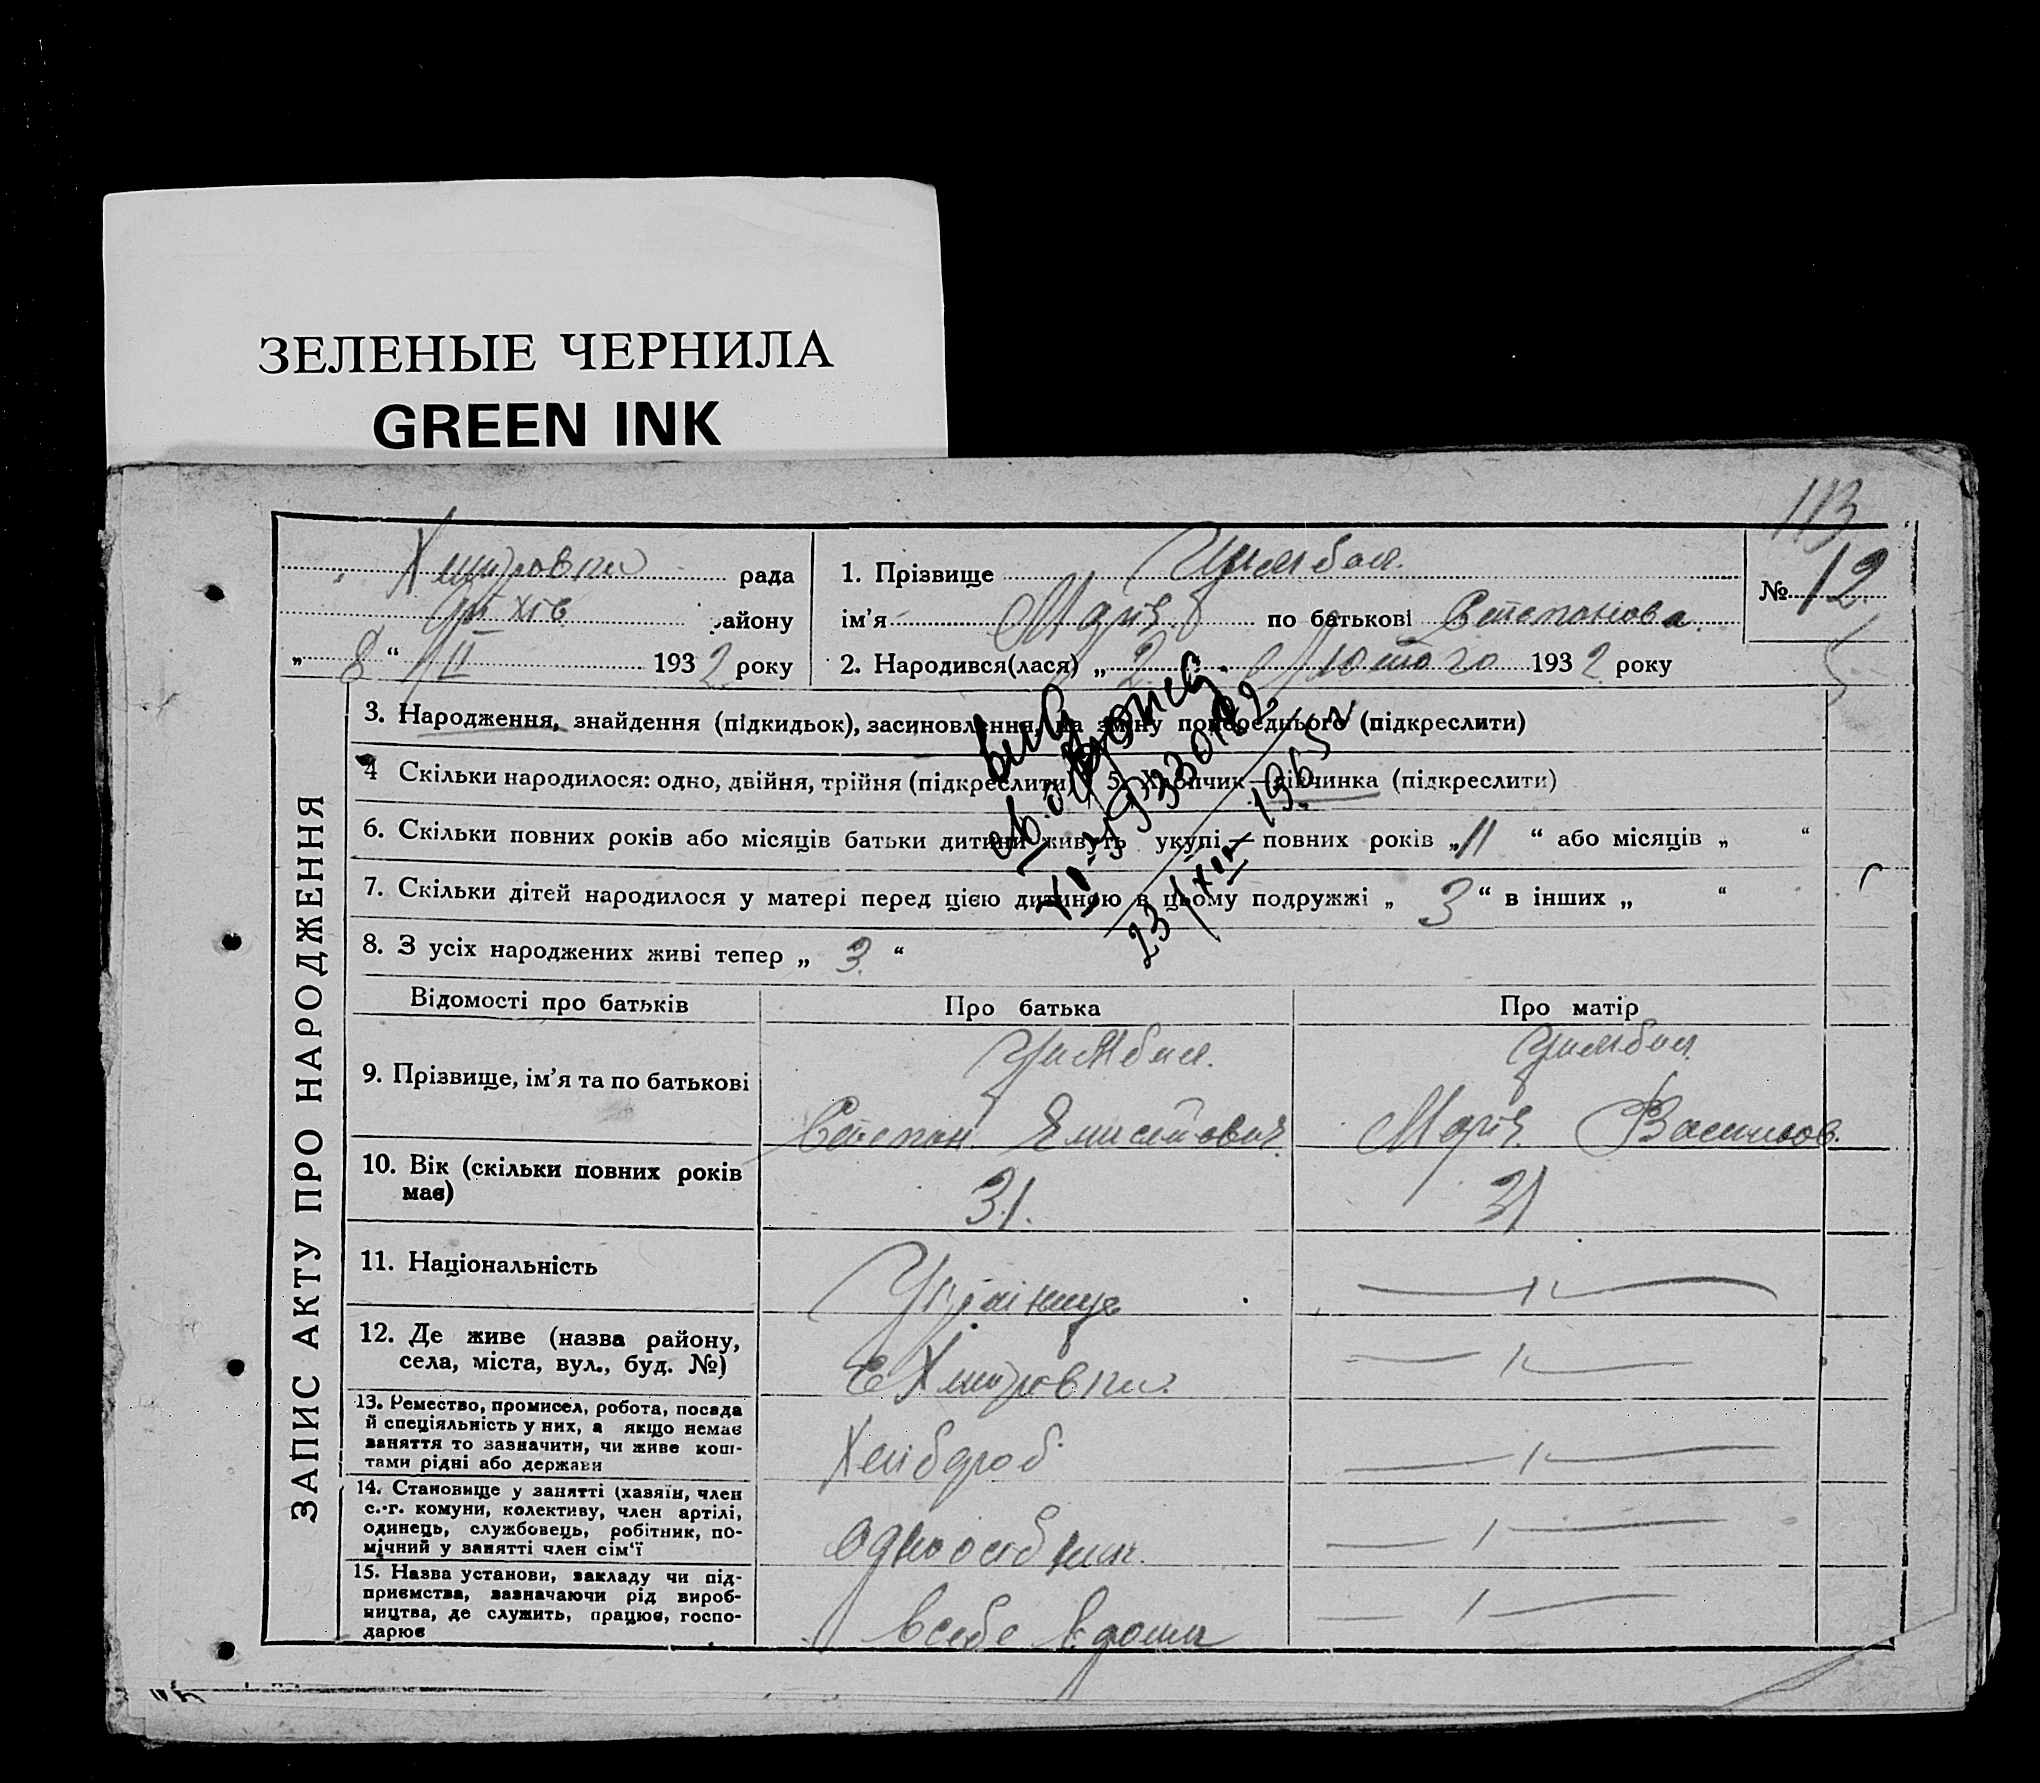 ЗЕЛЕНЫЕ ЧЕРНИЛА
GREEN INK
113
рада
району
„ 8 “ II 1932 року
1. Прізвище Цимбал
ім’я Марія по батькові Степанова
№ 12
2. Народився(лася) „ 2 Лютого 1932 року
ЗАПИС АКТУ ПРО НАРОДЖЕННЯ
3. Народження, знайдення (підкидьок), засиновлення, на зміну попереднього (підкреслити)
4 Скільки народилося: одно, двійня, трійня (підкреслити) 5. Хлопчик—дівчинка (підкреслити)
6. Скільки повних років або місяців батьки дитини живуть укупі — повних років „ 11 “ або місяців „ “
7. Скільки дітей народилося у матері перед цією дитиною в цьому подружжі „ 3 “ в інших „ “
8. З усіх народжених живі тепер „ 3. “
23 XII 1965
Відомості про батьків Про батька Про матір
9. Прізвище, ім’я та по батькові
Цимбал Цимбал
Степан Марія Василов.
10. Вік (скільки повних років має)
31. 31
11. Національність
Українці
12. Де живе (назва району, села, міста, вул., буд. №)
13. Ремество, промисел, робота, посада
й спеціяльність у них, а якщо немає
заняття то зазначити, чи живе кош-
тами рідні або держави
Хлібороб
14. Становище у занятті (хазяїн, член
с.-г. комуни, колективу, член артілі,
одинець, службовець, робітник, по-
мічний у занятті член сім’ї
одноосібник
15. Назва установи, закладу чи під-
приємства, зазначаючи рід вироб-
ництва, де служить, працює, госпо-
дарює
всебе вдома